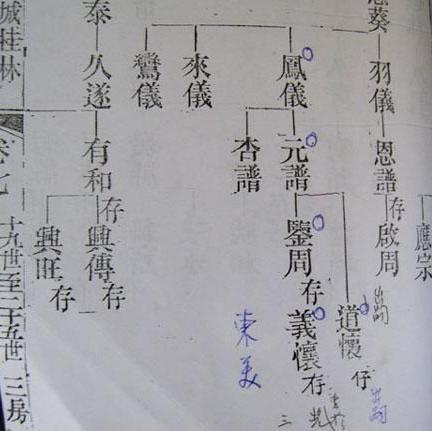 應宗
葵 羽儀 恩譜 存 啟周 出嗣
道懷 仔 出嗣
鳳儀 元譜 鑒周 存 義懷 存
杏譜
來儀
東美
鸞儀
泰 乆遂 有和 存 興傳 存
興旺 存
城桂林 卷七 十九世至二十五世 三房